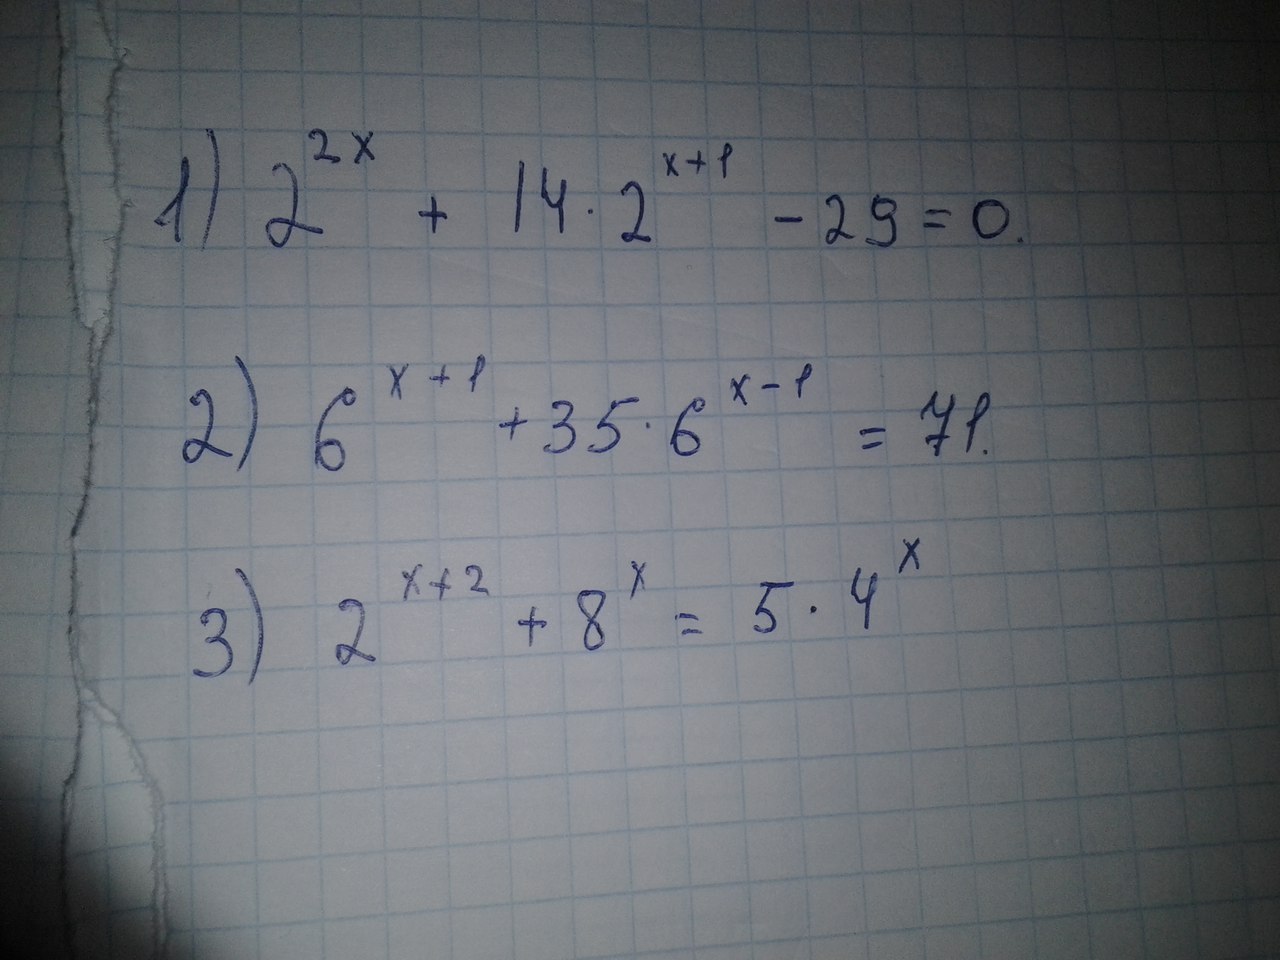 1) 2^{2x} + 14 · 2^{x+1} - 29 = 0.
2) 6^{x+1} + 35 · 6^{x-1} = 71.
3) 2^{x+2} + 8^{x} = 5 · 4^{x}